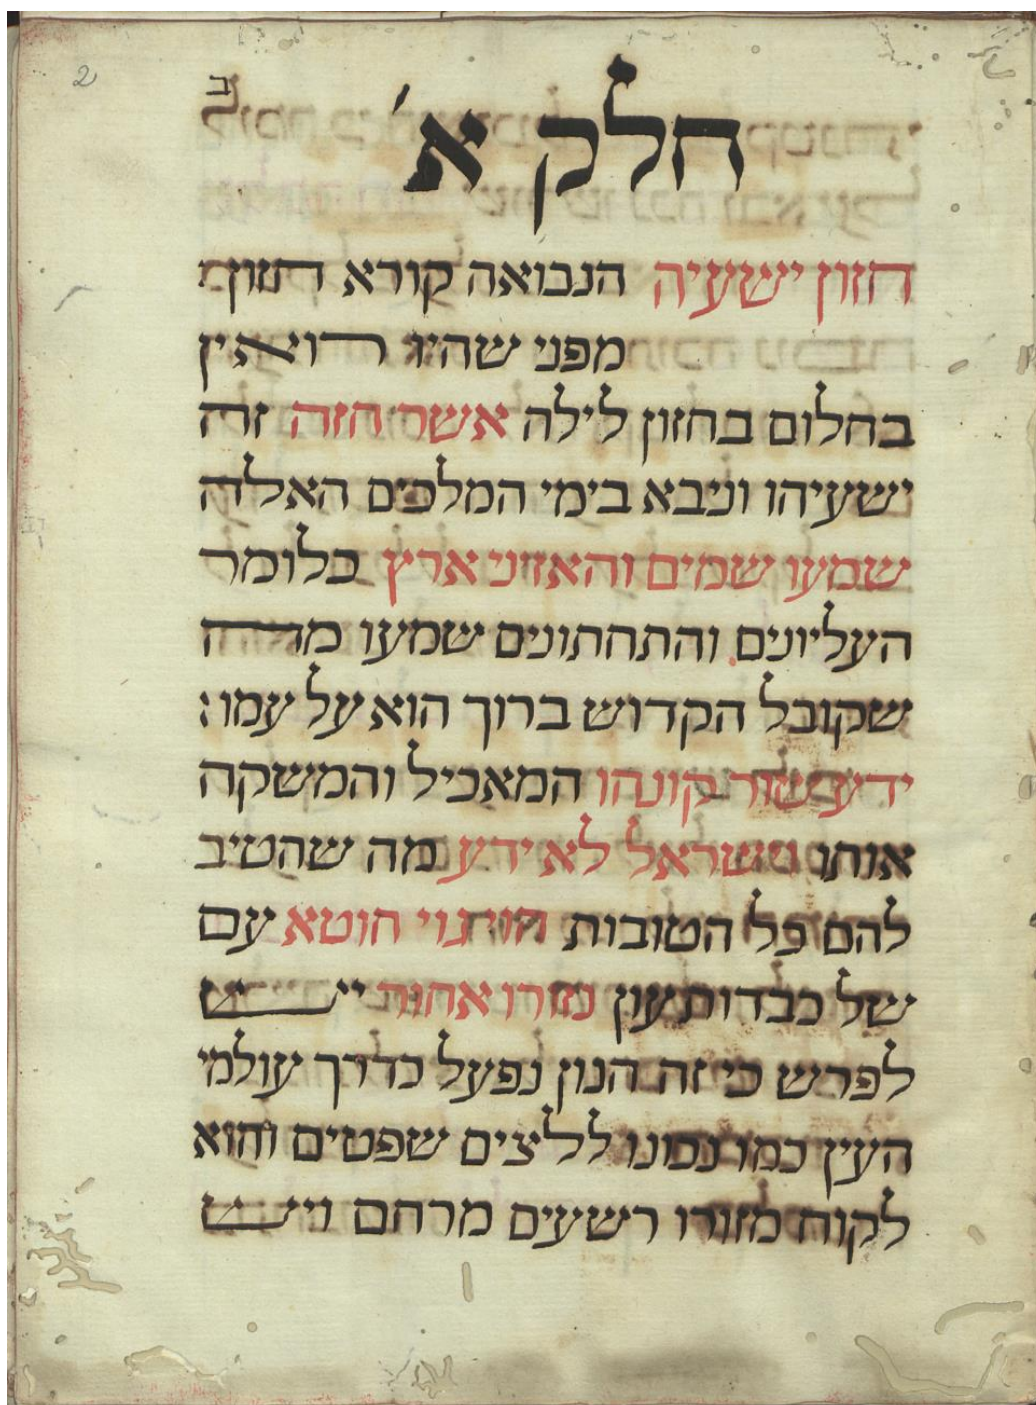 2
ב
חלק א'
חזון ישעיה הנבואה קורא חזון
מפני שהיו רואין
בחלום בחזון לילה אשר חזה זה
ישעיהו וניבא בימי המלכים האלה
שמעו שמים והאזיני ארץ כלומר
העליונים והתחתונים שמעו מה
שקובל הקדוש ברוך הוא על עמו:
ידע שור קונהו המאכיל והמשקה
אותו ישראל לא ידע מה שהטיב
להם כל הטובות הוי גוי חוטא עם
של כבדות עון נזרו אחור יש
לפרש כי זה הנון נפעל כדרך עולמי
העין כמו נכונו ללצים שפטים והוא
לקוח מזורו רשעים מרחם ויש